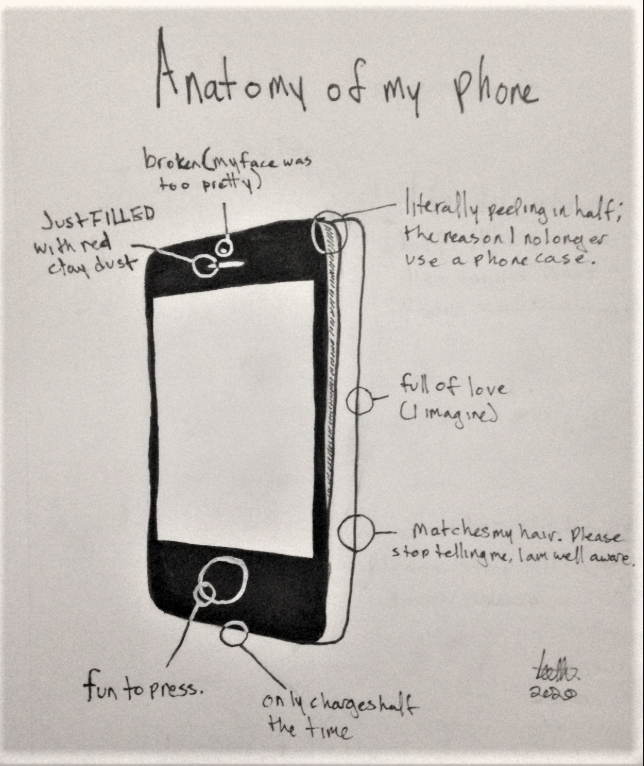 Anatomy of my phone
broken (my face was
too pretty)
Just FILLED
with red
clay dust
literally peeling in half;
the reason I no longer
use a phone case.
full of love
(I imagine)
Matches my hair. Please
stop telling me, I am well aware.
fun to press.
only charges half
the time
2020